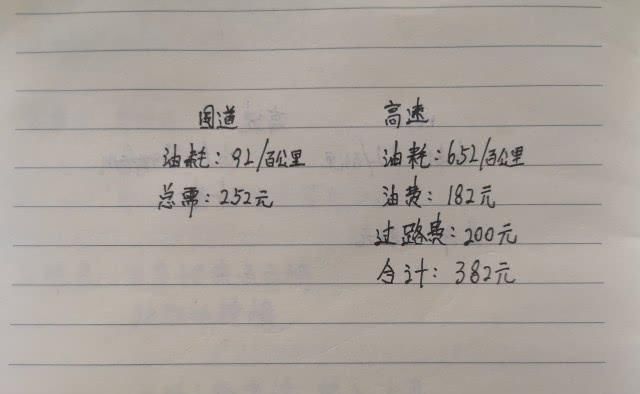 国道
油耗:9L/百公里
总需:252元
高速
油耗:6.5L/百公里
油费:182元
过路费:200元
合计:382元